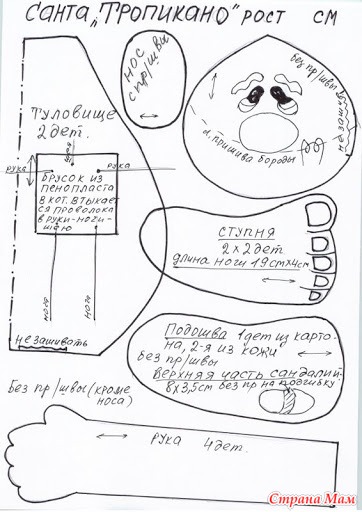 САНТА „ТРОПИКАНО" РОСТ СМ
НОС
с пр/швы
без пр/швы
не зашивать
л. пришива бороды
ТУЛОВИЩЕ
2 дет.
шея
рука
рука
БРУСОК ИЗ
ПЕНОПЛАСТА
В КОТ. ВТЫКАЕТ
СЯ ПРОВОЛОКА
В РУКИ-НОГИ-
ШЕЮ
НОГА
НОГА
незашивать
СТУПНЯ
2 x 2 дет
длина ноги 19смх4см
Подошва 1 дет из карто-
на, 2-я из кожи
Без пр/швы
Верхняя часть сандалий
8х3,5см без пр на подгибку
Без пр/швы (кроме
носа)
РУКА 4 дет.
Страна Мам